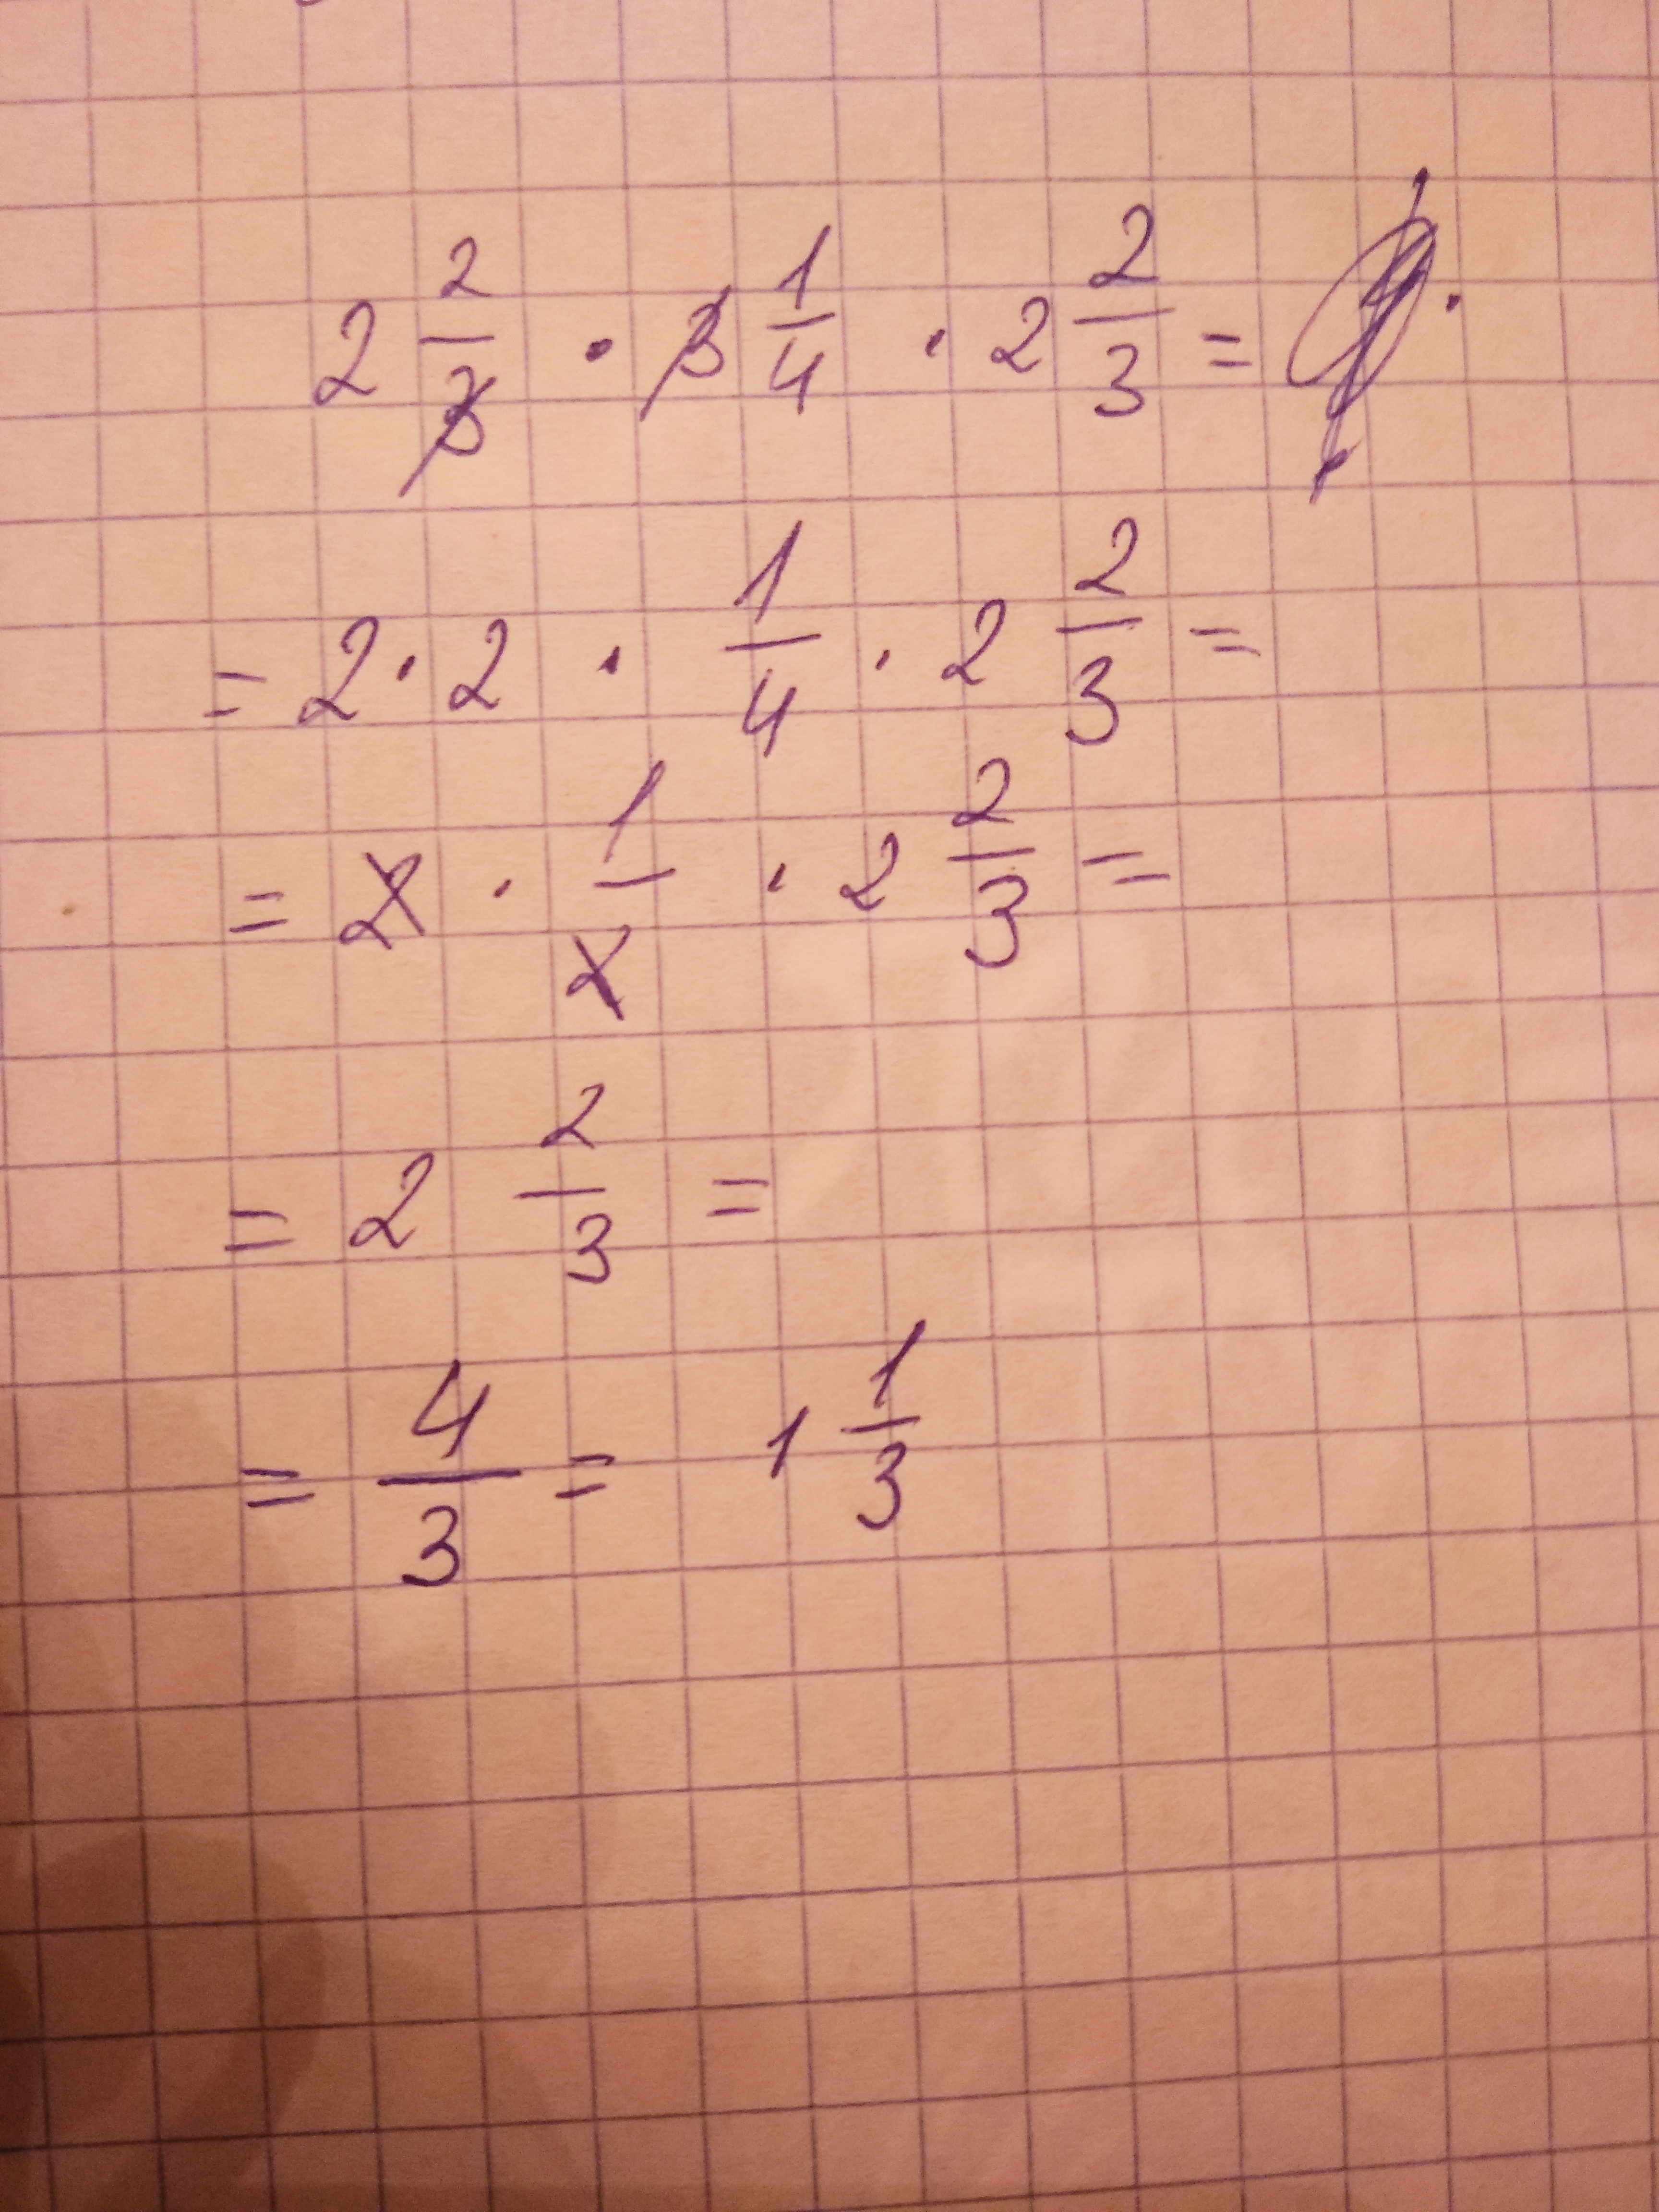 2 2/3 · 3 1/4 · 2 2/3 =
= 2 · 2 · 1/4 · 2 2/3 =
= 2 · 1/2 · 2 2/3 =
= 2 2/3 =
= 4/3 = 1 1/3